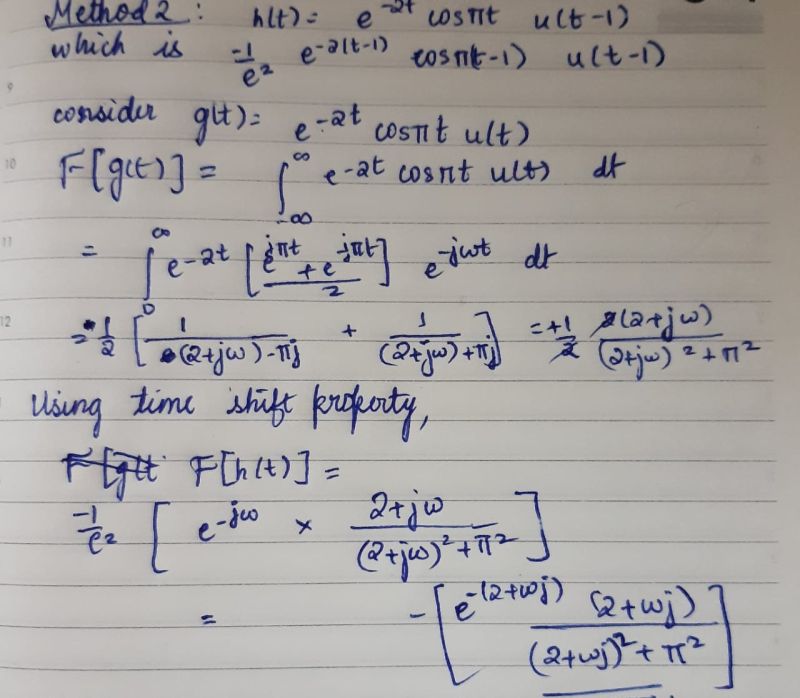 Method 2 : h(t) = e^{-2t} cosπt u(t-1)
which is -1/e² e^{-2(t-1)} cosπ(t-1) u(t-1)
9
consider g(t) = e^{-2t} cosπt u(t)
10 F[g(t)] = ∫_{-∞}^{∞} e^{-2t} cosπt u(t) dt
11 = ∫_0^∞ e^{-2t} [(e^{jπt} + e^{-jπt})/2] e^{-jωt} dt
12 = 1/2 [1/((2+jω)-πj) + 1/((2+jω)+πj)] = +1/2 2(2+jω)/((2+jω)²+π²)
Using time shift property,
F[g(t) F[h(t)] =
-1/e² [e^{-jω} × (2+jω)/((2+jω)²+π²)]
= -[e^{-(2+ωj)} (2+ωj)/((2+ωj)²+π²)]